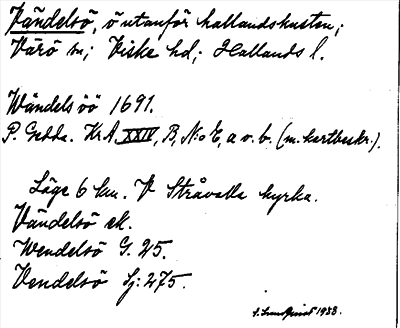 Vändelsö, ö utanför hallandskusten;
Värö sn; Viske hd; Hallands l.
Wändels öö 1691.
P. Gedda. Kr.A. XXIV, B, N:o E, a o. b. (m. kartbeskr.).
Läge 6 km. V Stråvalla kyrka.
Vändelsö ek.
Wendelsö G. 25.
Vendelsö Sj: 275.
S. Lundquist 1933.